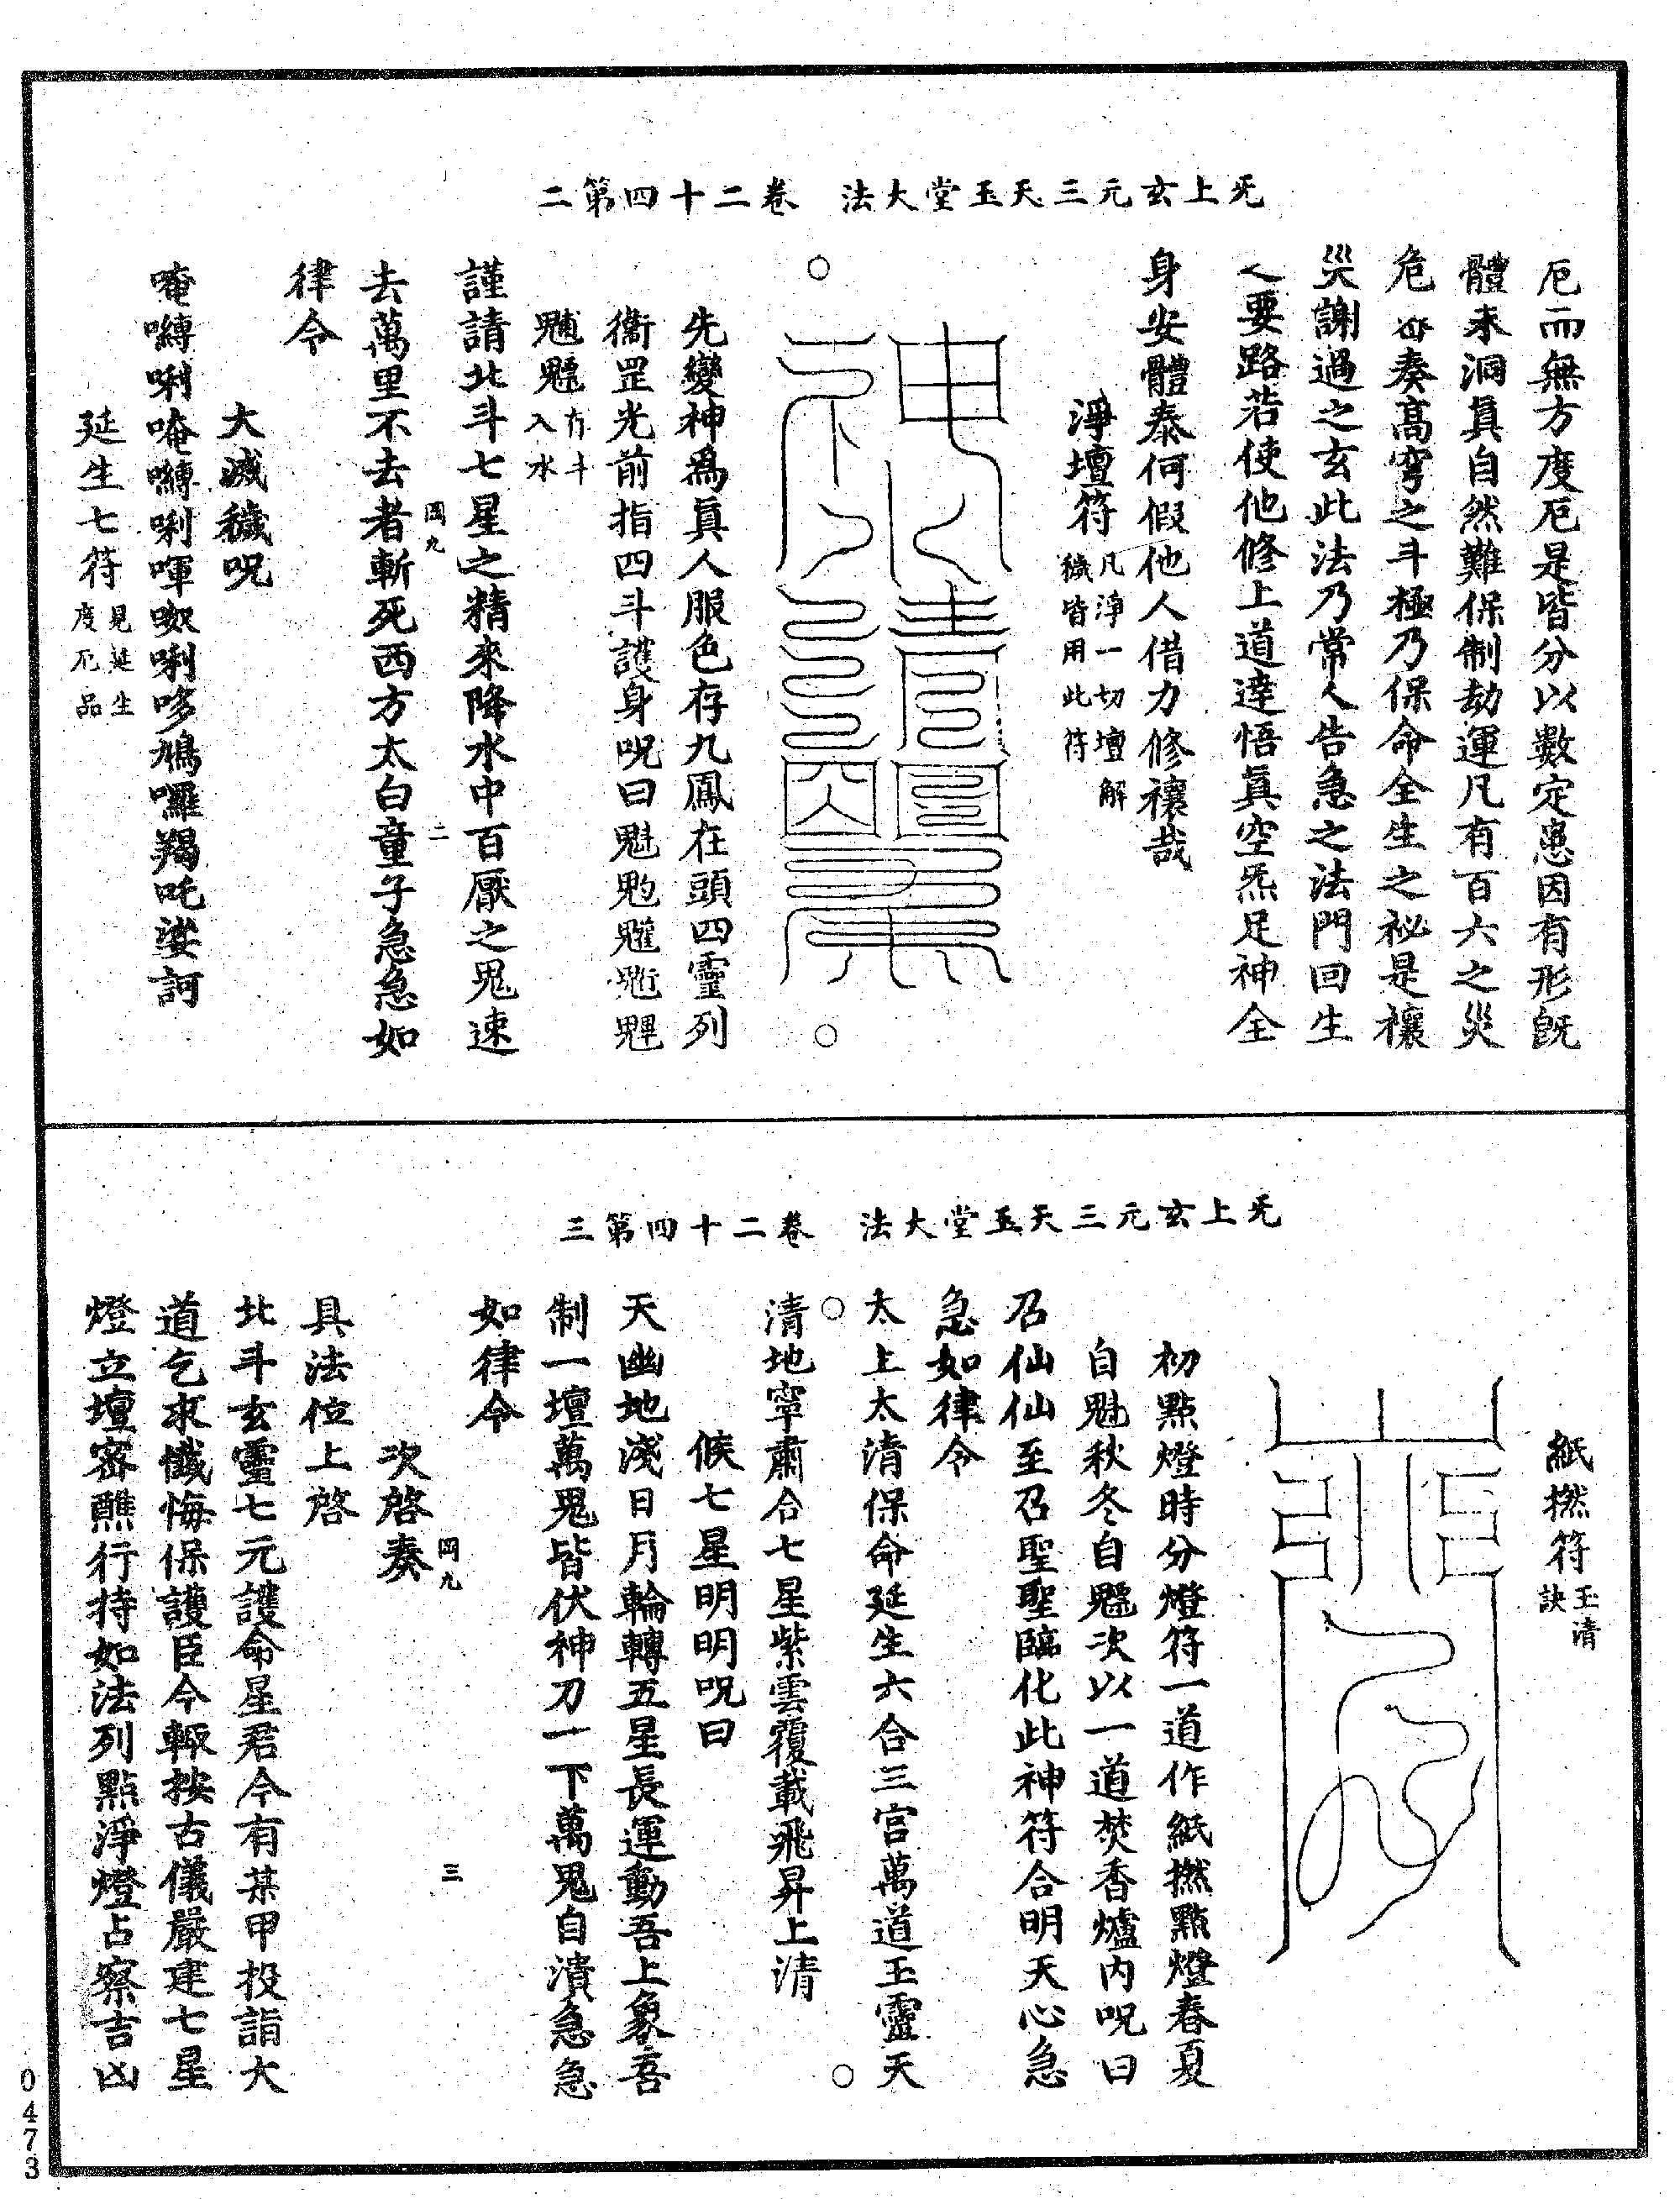 无上玄元三天玉堂大法　卷二十四第二
厄而無方度厄是皆分以數定患因有形旣
體未洞眞自然難保制劫運凡有百六之災
危昚奏高穹之斗極乃保命全生之祕是禳
災謝過之玄此法乃常人告急之法門回生
之要路若使他修上道達悟眞空炁足神全
身安體泰何假他人借力修禳哉
淨壇符凡淨一切壇解穢皆用此符
先變神爲眞人服色存九鳳在頭四靈列
衛罡光前指四斗護身呪曰魁𩲃䰢魓𩳐
䰡魒有斗入水
謹請北斗七星之精來降水中百厭之鬼速
去萬里不去者斬死西方太白童子急急如
罔九
二
律令
大滅穢呪
唵嚩唎唵嚩唎㖸呶唎哆鳩囉羯吒娑訶
延生七符見延生度厄品
无上玄元三天玉堂大法　卷二十四第三
紙撚符玉清訣
初點燈時分燈符一道作紙撚點燈春夏
自魁秋冬自魒次以一道焚香爐內呪曰
召仙仙至召聖聖臨化此神符合明天心急
急如律令
太上太清保命延生六合三宮萬道玉靈天
清地寧肅合七星紫雲覆載飛昇上清
候七星明明呪曰
天幽地淺日月輪轉五星長運動吾上象吾
制一壇萬鬼皆伏神刀一下萬鬼自潰急急
如律令
次啓奏
罔九
三
具法位上啓
北斗玄靈七元護命星君今有某甲投詣大
道乞求懺悔保護臣今輙按古儀嚴建七星
燈立壇密醮行持如法列點淨燈占察吉凶
0473